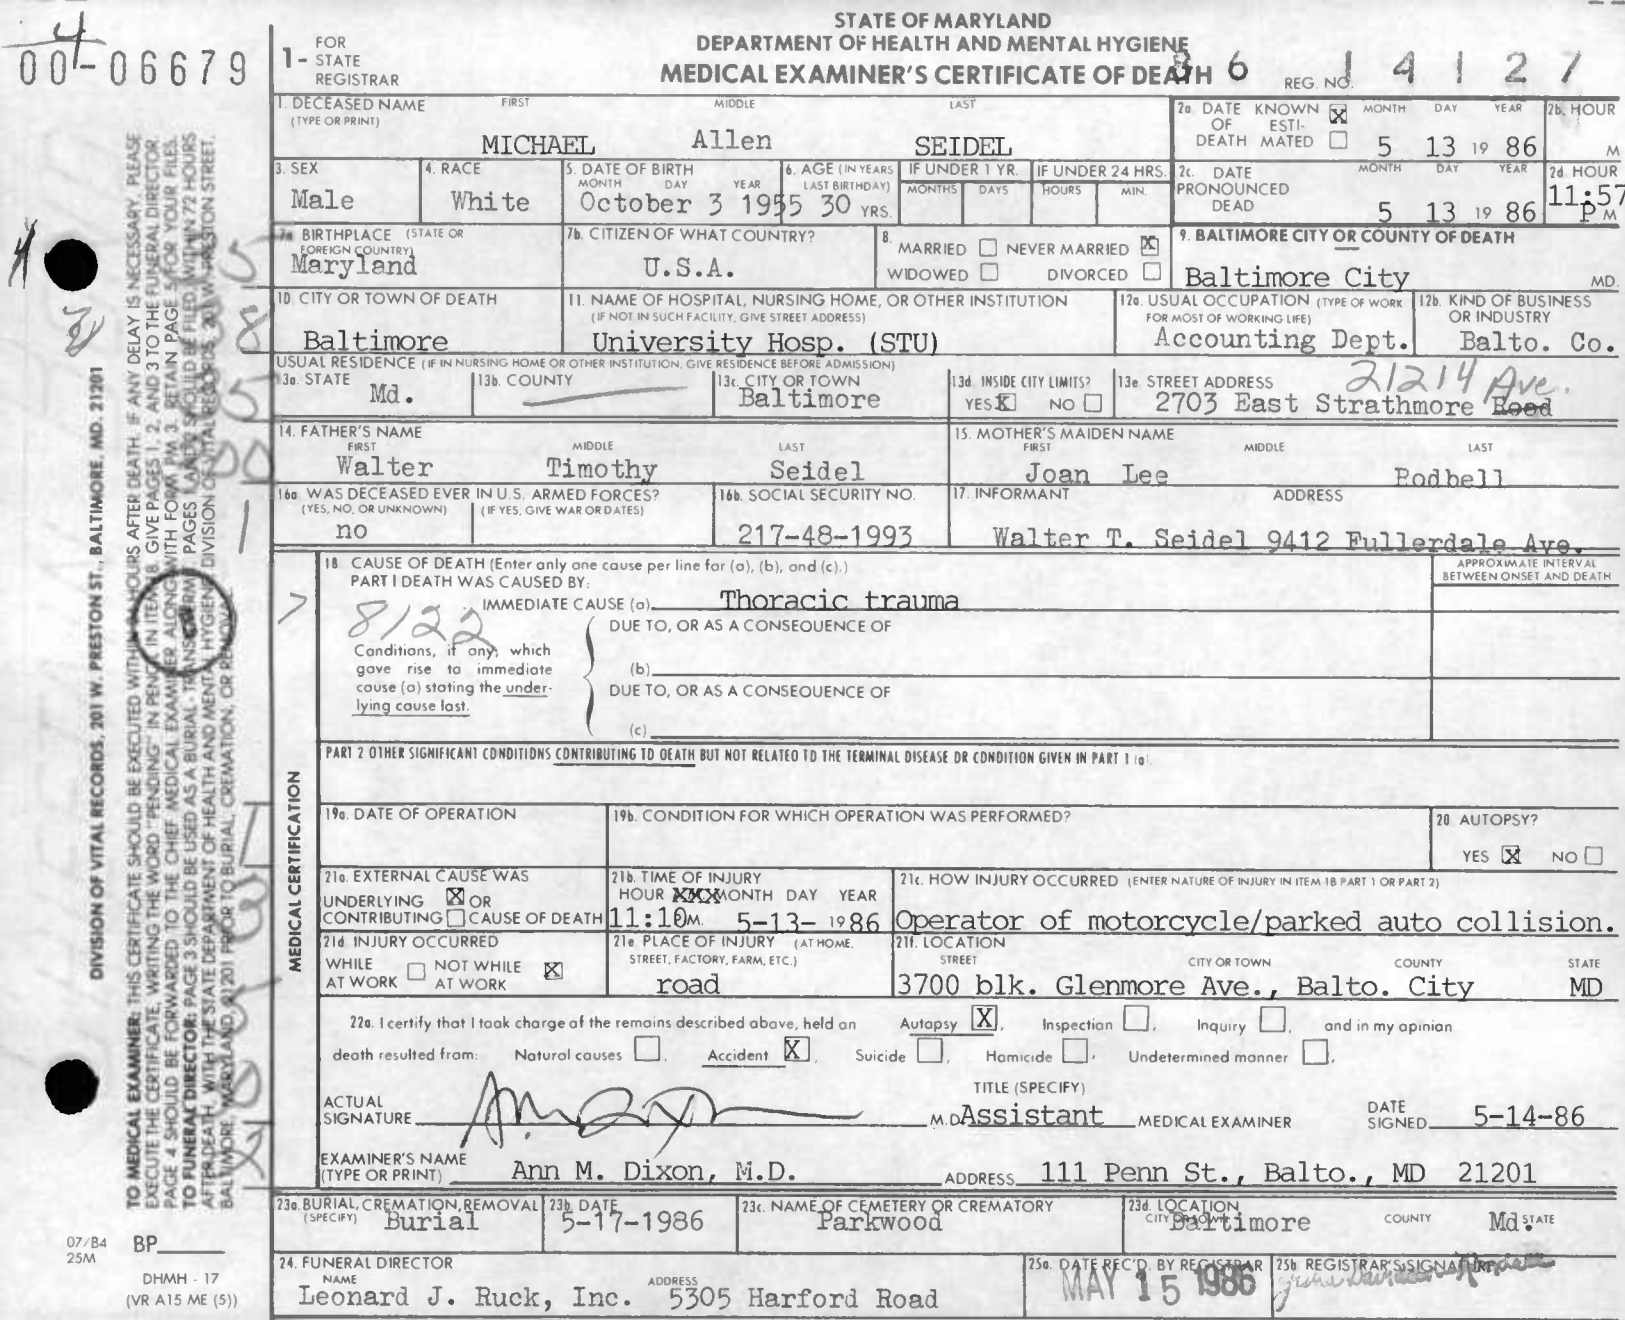 4
00-06679
1- FOR STATE REGISTRAR
STATE OF MARYLAND
DEPARTMENT OF HEALTH AND MENTAL HYGIENE
MEDICAL EXAMINER'S CERTIFICATE OF DEATH
86 REG. NO. 14127
1. DECEASED NAME (TYPE OR PRINT) FIRST MIDDLE LAST
MICHAEL Allen SEIDEL
2a. DATE OF DEATH KNOWN X ESTIMATED MONTH DAY YEAR
5 13 19 86
2b. HOUR M
3. SEX
Male
4. RACE
White
5. DATE OF BIRTH MONTH DAY YEAR
October 3 1955
6. AGE (IN YEARS LAST BIRTHDAY)
30 YRS.
IF UNDER 1 YR. MONTHS DAYS
IF UNDER 24 HRS. HOURS MIN.
2c. DATE PRONOUNCED DEAD MONTH DAY YEAR
5 13 19 86
2d HOUR
11:57 P M
7a BIRTHPLACE (STATE OR FOREIGN COUNTRY)
Maryland
7b. CITIZEN OF WHAT COUNTRY?
U.S.A.
8. MARRIED NEVER MARRIED X
WIDOWED DIVORCED
9. BALTIMORE CITY OR COUNTY OF DEATH
Baltimore City MD.
10. CITY OR TOWN OF DEATH
Baltimore
11. NAME OF HOSPITAL, NURSING HOME, OR OTHER INSTITUTION
(IF NOT IN SUCH FACILITY, GIVE STREET ADDRESS)
University Hosp. (STU)
12a. USUAL OCCUPATION (TYPE OF WORK FOR MOST OF WORKING LIFE)
Accounting Dept.
12b. KIND OF BUSINESS OR INDUSTRY
Balto. Co.
USUAL RESIDENCE (IF IN NURSING HOME OR OTHER INSTITUTION, GIVE RESIDENCE BEFORE ADMISSION)
13a. STATE
Md.
13b. COUNTY
13c. CITY OR TOWN
Baltimore
13d INSIDE CITY LIMITS?
YES X NO
13e STREET ADDRESS 21214 Ave.
2703 East Strathmore Road
14. FATHER'S NAME FIRST MIDDLE LAST
Walter Timothy Seidel
15. MOTHER'S MAIDEN NAME FIRST MIDDLE LAST
Joan Lee Podbell
16a WAS DECEASED EVER IN U.S. ARMED FORCES?
(YES, NO, OR UNKNOWN) (IF YES, GIVE WAR OR DATES)
no
16b. SOCIAL SECURITY NO.
217-48-1993
17. INFORMANT ADDRESS
Walter T. Seidel 9412 Fullerdale Ave.
MEDICAL CERTIFICATION
18 CAUSE OF DEATH (Enter only one cause per line for (a), (b), and (c).)
PART I DEATH WAS CAUSED BY:
IMMEDIATE CAUSE (a) Thoracic trauma
APPROXIMATE INTERVAL BETWEEN ONSET AND DEATH
8122
DUE TO, OR AS A CONSEQUENCE OF
Conditions, if any, which gave rise to immediate cause (a) stating the underlying cause last.
(b)
DUE TO, OR AS A CONSEQUENCE OF
(c)
PART 2 OTHER SIGNIFICANT CONDITIONS CONTRIBUTING TO DEATH BUT NOT RELATED TO THE TERMINAL DISEASE OR CONDITION GIVEN IN PART 1 (a).
19a. DATE OF OPERATION
19b. CONDITION FOR WHICH OPERATION WAS PERFORMED?
20 AUTOPSY?
YES X NO
21a. EXTERNAL CAUSE WAS
UNDERLYING X OR
CONTRIBUTING CAUSE OF DEATH
21b. TIME OF INJURY
HOUR XXX MONTH DAY YEAR
11:10 M. 5-13- 1986
21c. HOW INJURY OCCURRED (ENTER NATURE OF INJURY IN ITEM 18 PART 1 OR PART 2)
Operator of motorcycle/parked auto collision.
21d INJURY OCCURRED
WHILE AT WORK NOT WHILE AT WORK X
21e PLACE OF INJURY (AT HOME, STREET, FACTORY, FARM, ETC.)
road
21f. LOCATION
STREET CITY OR TOWN COUNTY STATE
3700 blk. Glenmore Ave., Balto. City MD
22a. I certify that I took charge of the remains described above, held an Autopsy X, Inspection , Inquiry , and in my opinion
death resulted from: Natural causes , Accident X, Suicide , Homicide , Undetermined manner ,
ACTUAL SIGNATURE M.D.
TITLE (SPECIFY)
Assistant MEDICAL EXAMINER
DATE SIGNED 5-14-86
EXAMINER'S NAME (TYPE OR PRINT) Ann M. Dixon, M.D.
ADDRESS 111 Penn St., Balto., MD 21201
23a. BURIAL, CREMATION, REMOVAL (SPECIFY)
Burial
23b. DATE
5-17-1986
23c. NAME OF CEMETERY OR CREMATORY
Parkwood
23d. LOCATION CITY OR TOWN COUNTY STATE
Baltimore Md.
24. FUNERAL DIRECTOR
NAME ADDRESS
Leonard J. Ruck, Inc. 5305 Harford Road
25a. DATE REC'D. BY REGISTRAR
MAY 15 1986
25b REGISTRAR'S SIGNATURE
DIVISION OF VITAL RECORDS, 201 W. PRESTON ST., BALTIMORE, MD. 21201
TO MEDICAL EXAMINER: THIS CERTIFICATE SHOULD BE EXECUTED WITHIN HOURS AFTER DEATH. IF ANY DELAY IS NECESSARY, PLEASE
EXECUTE THE CERTIFICATE, WRITING THE WORD "PENDING" IN PENCIL IN ITEM 18. GIVE PAGES 1, 2, AND 3 TO THE FUNERAL DIRECTOR.
PAGE 4 SHOULD BE FORWARDED TO THE CHIEF MEDICAL EXAMINER ALONG WITH FORM PM 3. RETAIN PAGE 5 FOR YOUR FILES.
TO FUNERAL DIRECTOR: PAGE 3 SHOULD BE USED AS A BURIAL - TRANSIT PERMIT. PAGES 1 AND 2 SHOULD BE FILED WITHIN 72 HOURS
AFTER DEATH, WITH THE STATE DEPARTMENT OF HEALTH AND MENTAL HYGIENE, DIVISION OF VITAL RECORDS, 201 W. PRESTON STREET,
BALTIMORE, MARYLAND, 21201 PRIOR TO BURIAL, CREMATION, OR REMOVAL.
07/84
25M
BP
DHMH - 17
(VR A15 ME (5))